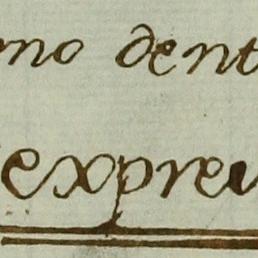 mno dent
expreu